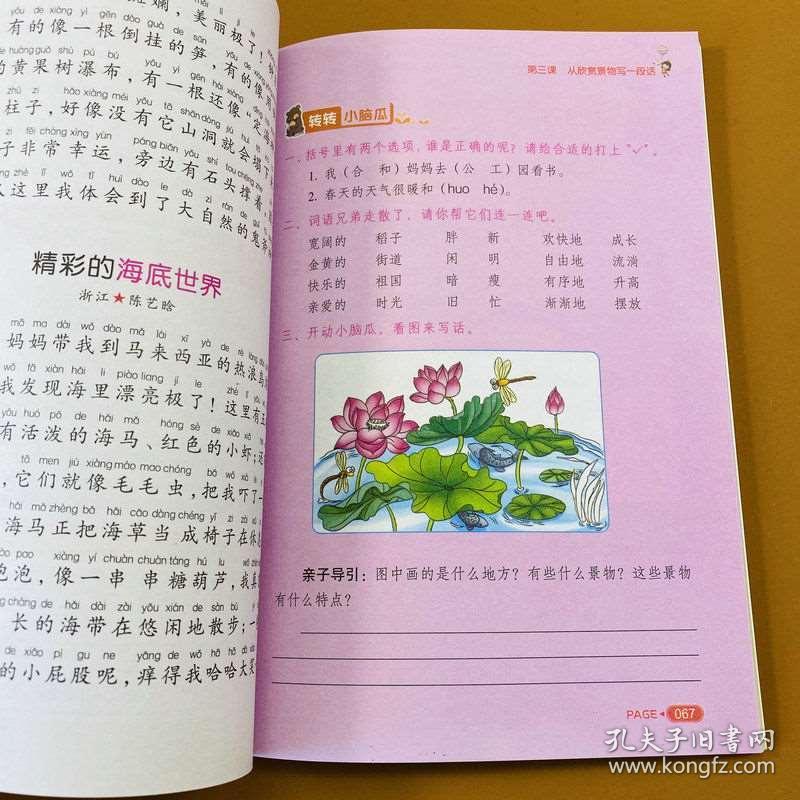 斓，美丽极了！
yǒu de xiàng yì gēn dào guà de sǔn yǒu de xiàng
有的像一根倒挂的笋，有的像
huáng guǒ shù pù bù yǒu yì gēn hái xiàng dìng hǎi
的黄果树瀑布，有一根还像“定海
zhù zi hǎo xiàng méi yǒu tā shān dòng jiù huì tā
柱子，好像没有它山洞就会塌了
zǐ fēi cháng xìng yùn páng biān yǒu shí tou chēng zhe
子非常幸运，旁边有石头撑着，
zhè lǐ wǒ tǐ huì dào le dà zì rán de guǐ fǔ
这里我体会到了大自然的鬼斧
精彩的海底世界
浙江★陈艺晗
mā ma dài wǒ dào mǎ lái xī yà de rè làng dǎo
妈妈带我到马来西亚的热浪岛
wǒ fā xiàn hǎi lǐ piào liang jí le zhè lǐ yǒu wǔ
我发现海里漂亮极了！这里有五
yǒu huó pō de hǎi mǎ hóng sè de xiǎo xiā
有活泼的海马、红色的小虾；还
tā men jiù xiàng máo mao chóng bǎ wǒ xià le yí
，它们就像毛毛虫，把我吓了一
hǎi mǎ zhèng bǎ hǎi cǎo dàng chéng yǐ zi zài xiū
海马正把海草当成椅子在休息
pào pao xiàng yí chuàn chuàn táng hú lu wǒ zhēn
泡泡，像一串串糖葫芦，我真
cháng de hǎi dài zài yōu xián de sàn bù
长的海带在悠闲地散步；一
de xiǎo pì gu ne yǎng de wǒ hā hā dà xiào
的小屁股呢，痒得我哈哈大笑
第三课 从欣赏景物写一段话
转转小脑瓜
一、括号里有两个选项，谁是正确的呢？请给合适的打上“✓”。
1. 我（合 和）妈妈去（公 工）园看书。
2. 春天的天气很暖和（huo hé）。
二、词语兄弟走散了，请你帮它们连一连吧。
宽阔的 稻子 胖 新 欢快地 成长
金黄的 街道 闲 明 自由地 流淌
快乐的 祖国 暗 瘦 有序地 升高
亲爱的 时光 旧 忙 渐渐地 摆放
三、开动小脑瓜，看图来写话。
亲子导引：图中画的是什么地方？有些什么景物？这些景物
有什么特点？
PAGE 067
孔夫子旧书网
www.kongfz.com